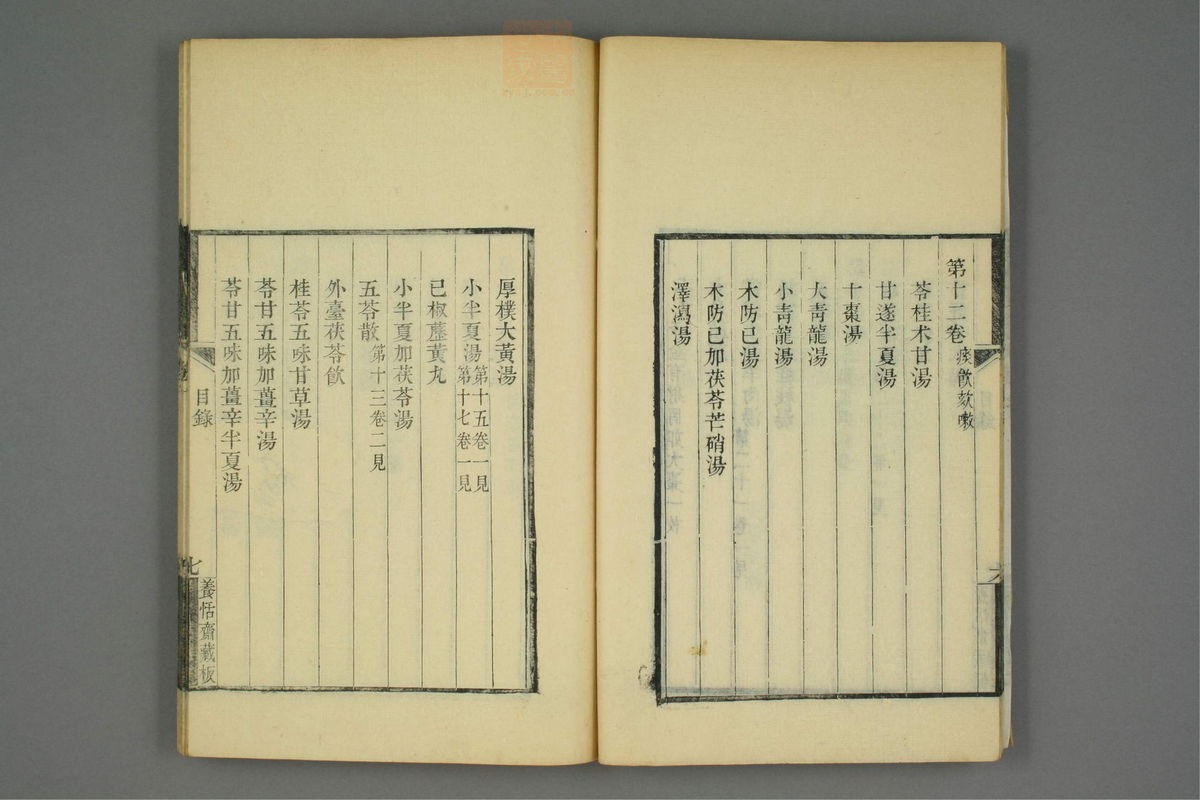 第十二卷 痰飲欬嗽
苓桂术甘湯
甘遂半夏湯
十棗湯
大靑龍湯
小靑龍湯
木防已湯
木防已加茯苓芒硝湯
澤瀉湯
厚樸大黃湯
小半夏湯 第十五卷一見 第十七卷一見
已椒藶黃丸
小半夏加茯苓湯
五苓散 第十三卷二見
外臺茯苓飲
桂苓五味甘草湯
苓甘五味加薑辛湯
苓甘五味加薑辛半夏湯
目錄
七
養恬齋藏板